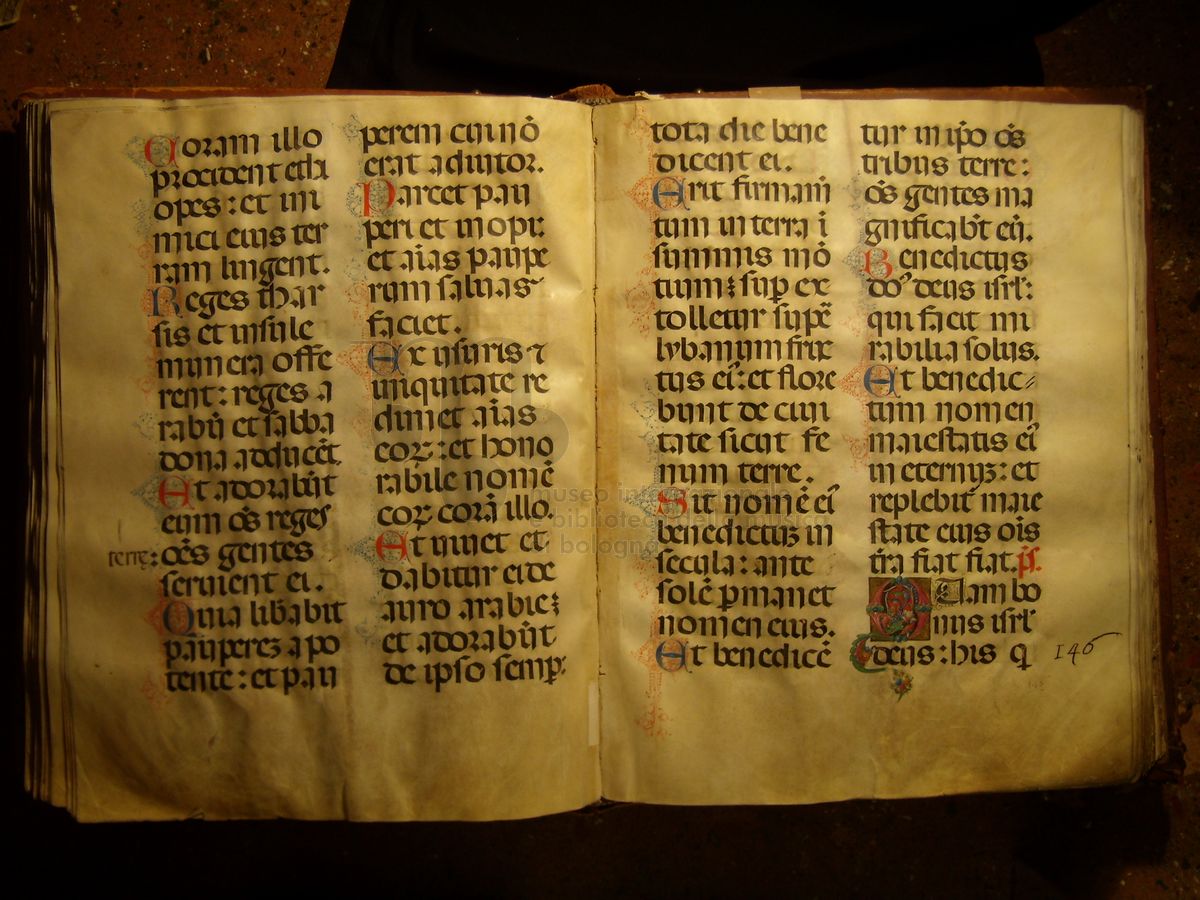 Coram illo
procident ethi
opes : et ini
mici eius ter
ram lingent.
Reges thar
sis et insule
munera offe
rent : reges a
rabũ et sabba
dona adducẽt
Et adorabũt
eum oẽs reges
terre: oẽs gentes
seruient ei.
Quia libabit
pauperez a po
tente : et pau
perem cui nõ
erat adiutor.
Parcet pau
peri et inopi:
et aĩas paupe
rum saluas
faciet.
Ex usuris ⁊
iniquitate re
dimet aĩas
eoꝝ : et hono
rabile nomẽ
eoꝝ corã illo.
Et uiuet et
dabitur ei de
auro arabie:
et adorabũt
de ipso semp:
tota die bene
dicent ei.
Erit firmam̃
tum in terra ĩ
summis mõ
tium: sup ex
tolletur supẽ
lybanum fruc
tus ei: et flore
bunt de ciui
tate sicut fe
num terre.
Sit nomẽ ei
benedictuz in
secula : ante
solẽ pmanet
nomen eius.
Et benedicẽ
tur in ipo oẽs
tribus terre :
oẽs gentes ma
gnificabt eũ.
Benedictus
do deus isrl:
qui facit mi
rabilia solus.
Et benedic
tum nomen
maiestatis ei
in eternuz : et
replebit maie
state eius ois
tra fiat fiat. ps.
Quam bo
nus isrl
deus : his q
146
museo internazionale
e biblioteca della musica
bologna